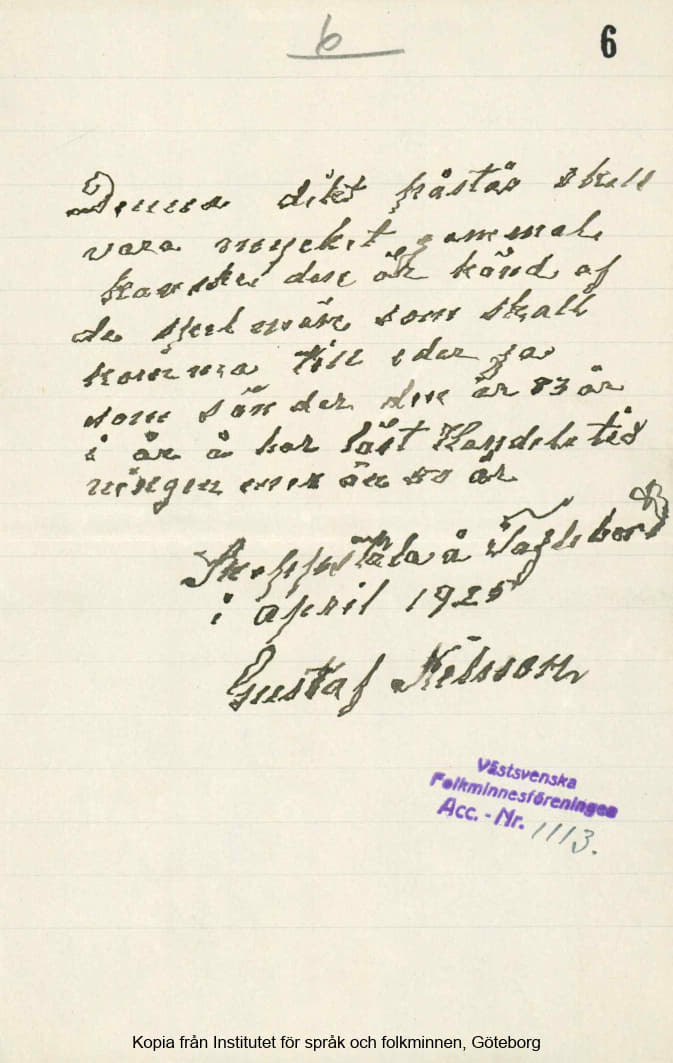 6
6
Denna dikt påstås skall
vara mycket gammal
kanske den är känd af
de som skall
komma till eder ja
som sänder den är 83 år
i år å har läst Handelstid
ningen mer än 50 år
å
i april 1925
Gustaf Nilsson
Västsvenska
Folkminnesföreningen
Acc. - Nr. 1113.
Kopia från Institutet för språk och folkminnen, Göteborg